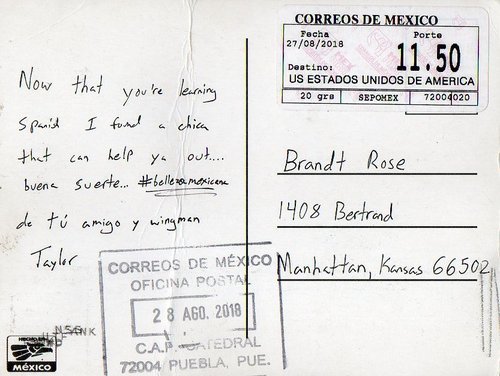 CORREOS DE MEXICO
Fecha
Porte
27/08/2018
11.50
Destino:
US ESTADOS UNIDOS DE AMERICA
20 grs
SEPOMEX
72004020
Now that you're learning
Spanish I found a chica
that can help ya out....
buena suerte... #bellezamexicana
de tú amigo y wingman
Taylor
Brandt Rose
1408 Bertrand
Manhattan, Kansas 66502
CORREOS DE MÉXICO
OFICINA POSTAL
28 AGO. 2018
C.A.P. CATEDRAL
72004 PUEBLA, PUE.
HECHO EN
MÉXICO